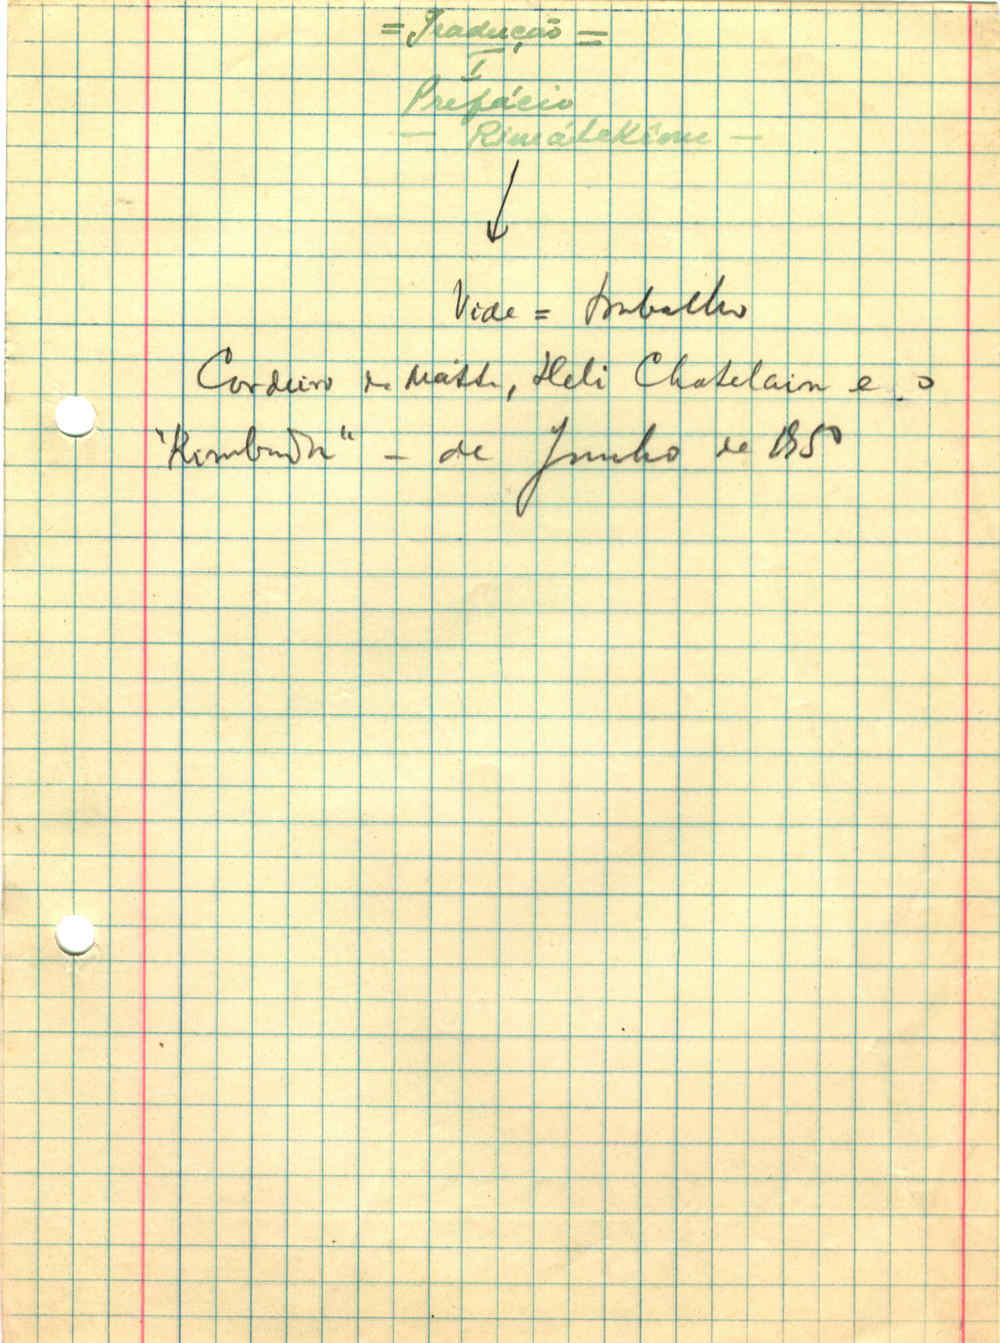 = Tradução =
I
Prefácio
— Rimátekênu —
Vide = trabalho
Cordeiro da Matta, Heli Chatelain e o
"Kimbundu" - de Junho de 1950